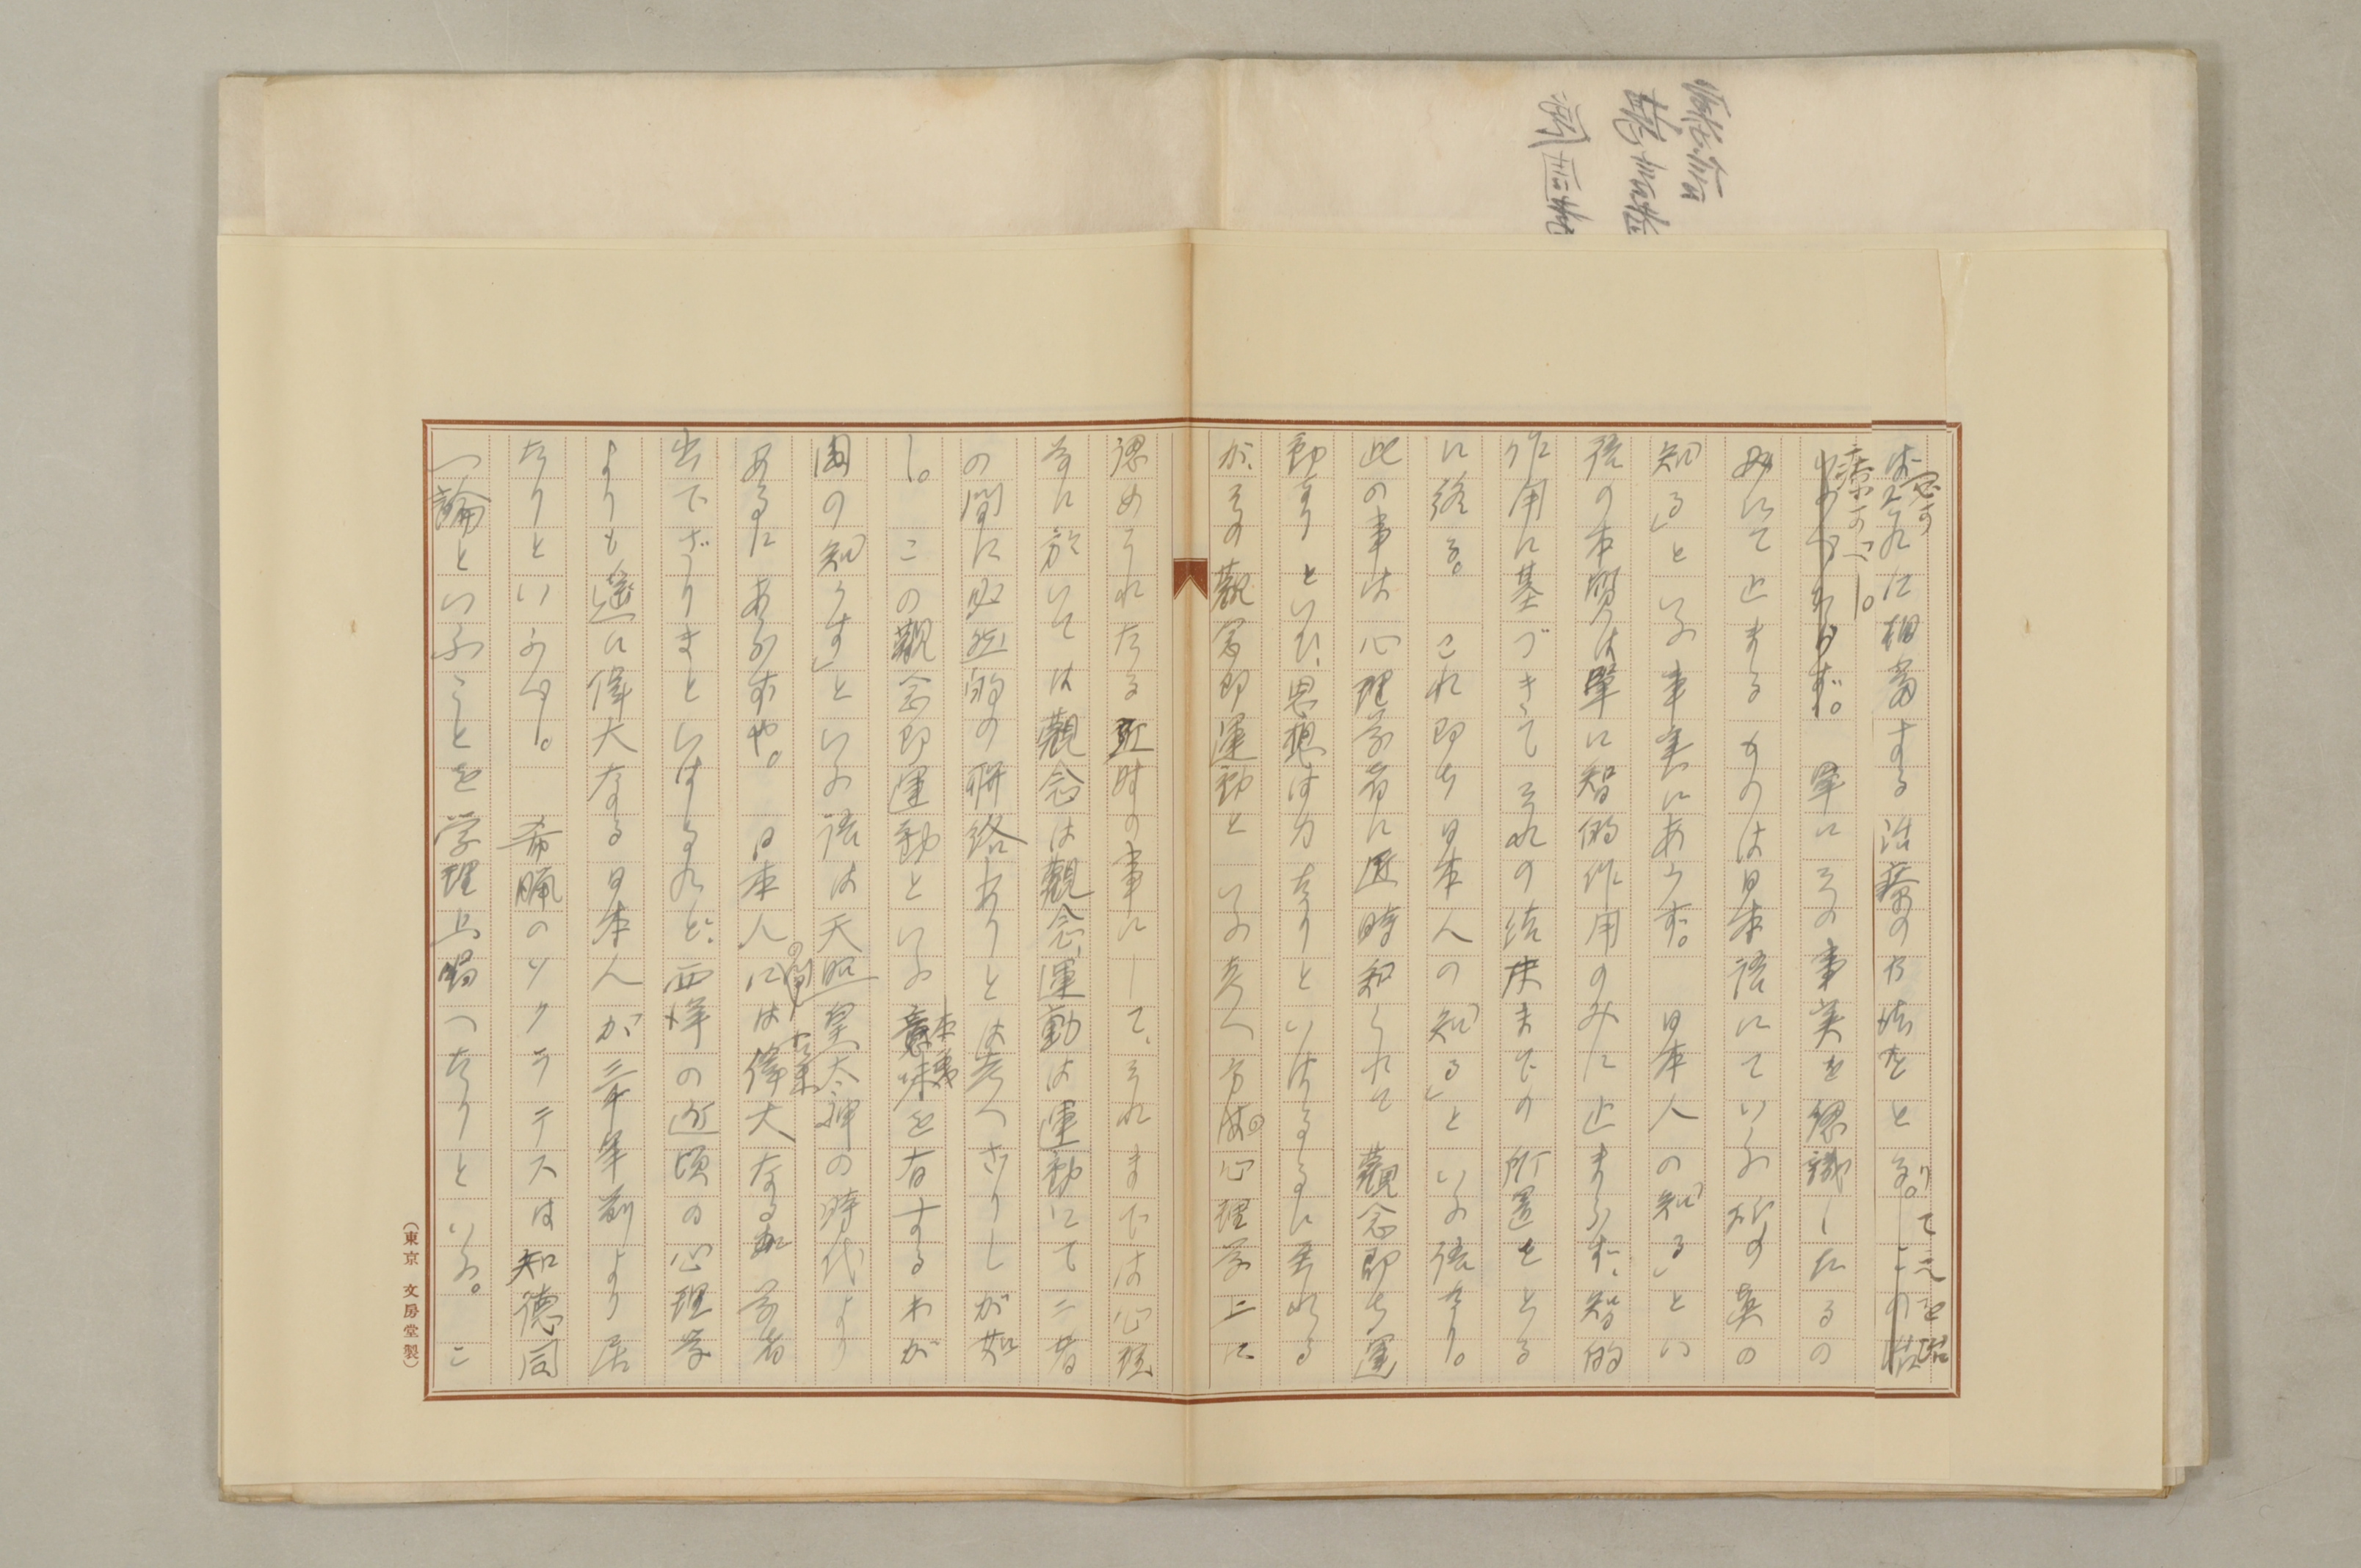 はこれに相當する治療の方法をとる。
單にその事実を認識したるの
みにて止まるものは日本語にていふ所の真の
知る」といふ事実にあらず。 日本人の「知る」とい
語の本質は單に智的作用のみに止まらず、智的
作用に基づきて それの結末までの所置をとる
に終る。 これ即ち日本人の「知る」といふ語なり。
此の事は心理学者に近時知られて 觀念即ち運
動なりといひ、思想は力なりといはるるに至れる
が、その觀念即運動と いふ考へ方は心理学上に
認めそれたる近時の事にして、それまでは心理
学に於いては觀念は觀念、運動は運動にて二者
の間に必然的の聯絡ありとは考へざりしが如
し。 この觀念即運動といふ本義を有するわが
國の「知らす」といふ語は天照皇大神の時代より
あるにあらずや。 日本人には偉大なる学者
出でざりきといはるれど、西洋の近頃の心理学
よりも遙に偉大なる日本人が三千年前より居
たりといふべし。 希臘のソクラテスは知德同
一論といふことを学理上唱へたりといふ。 こ
（東京 文房堂製）